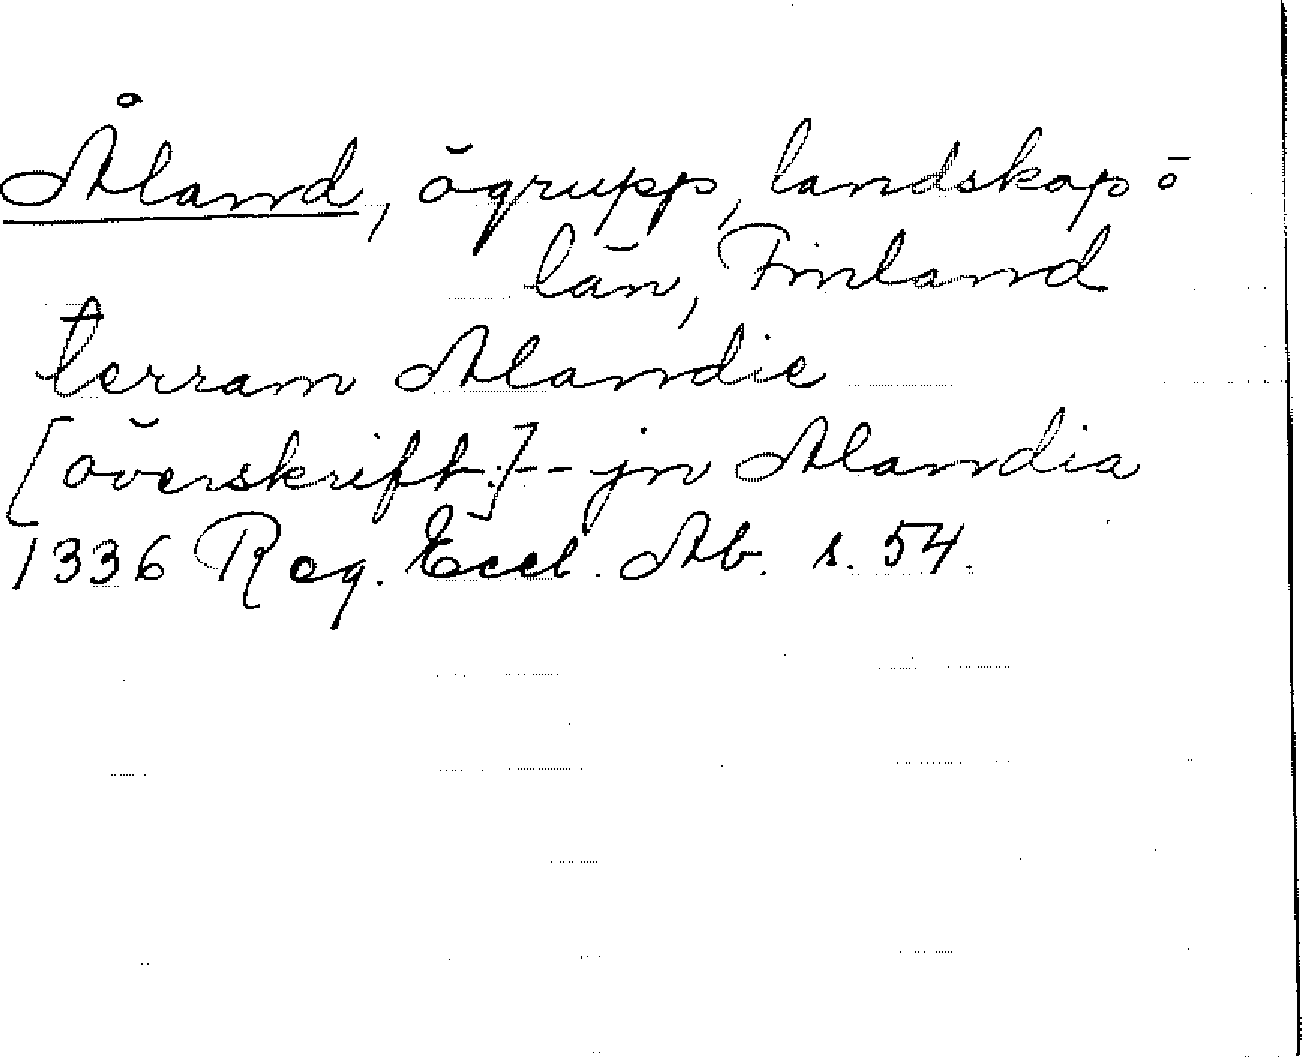 Åland, ögrupp, landskap o
län, Finland
terram Alandie
[överskrift] -- jn Alandia
1336 Reg. Eccl. Ab. s. 54.